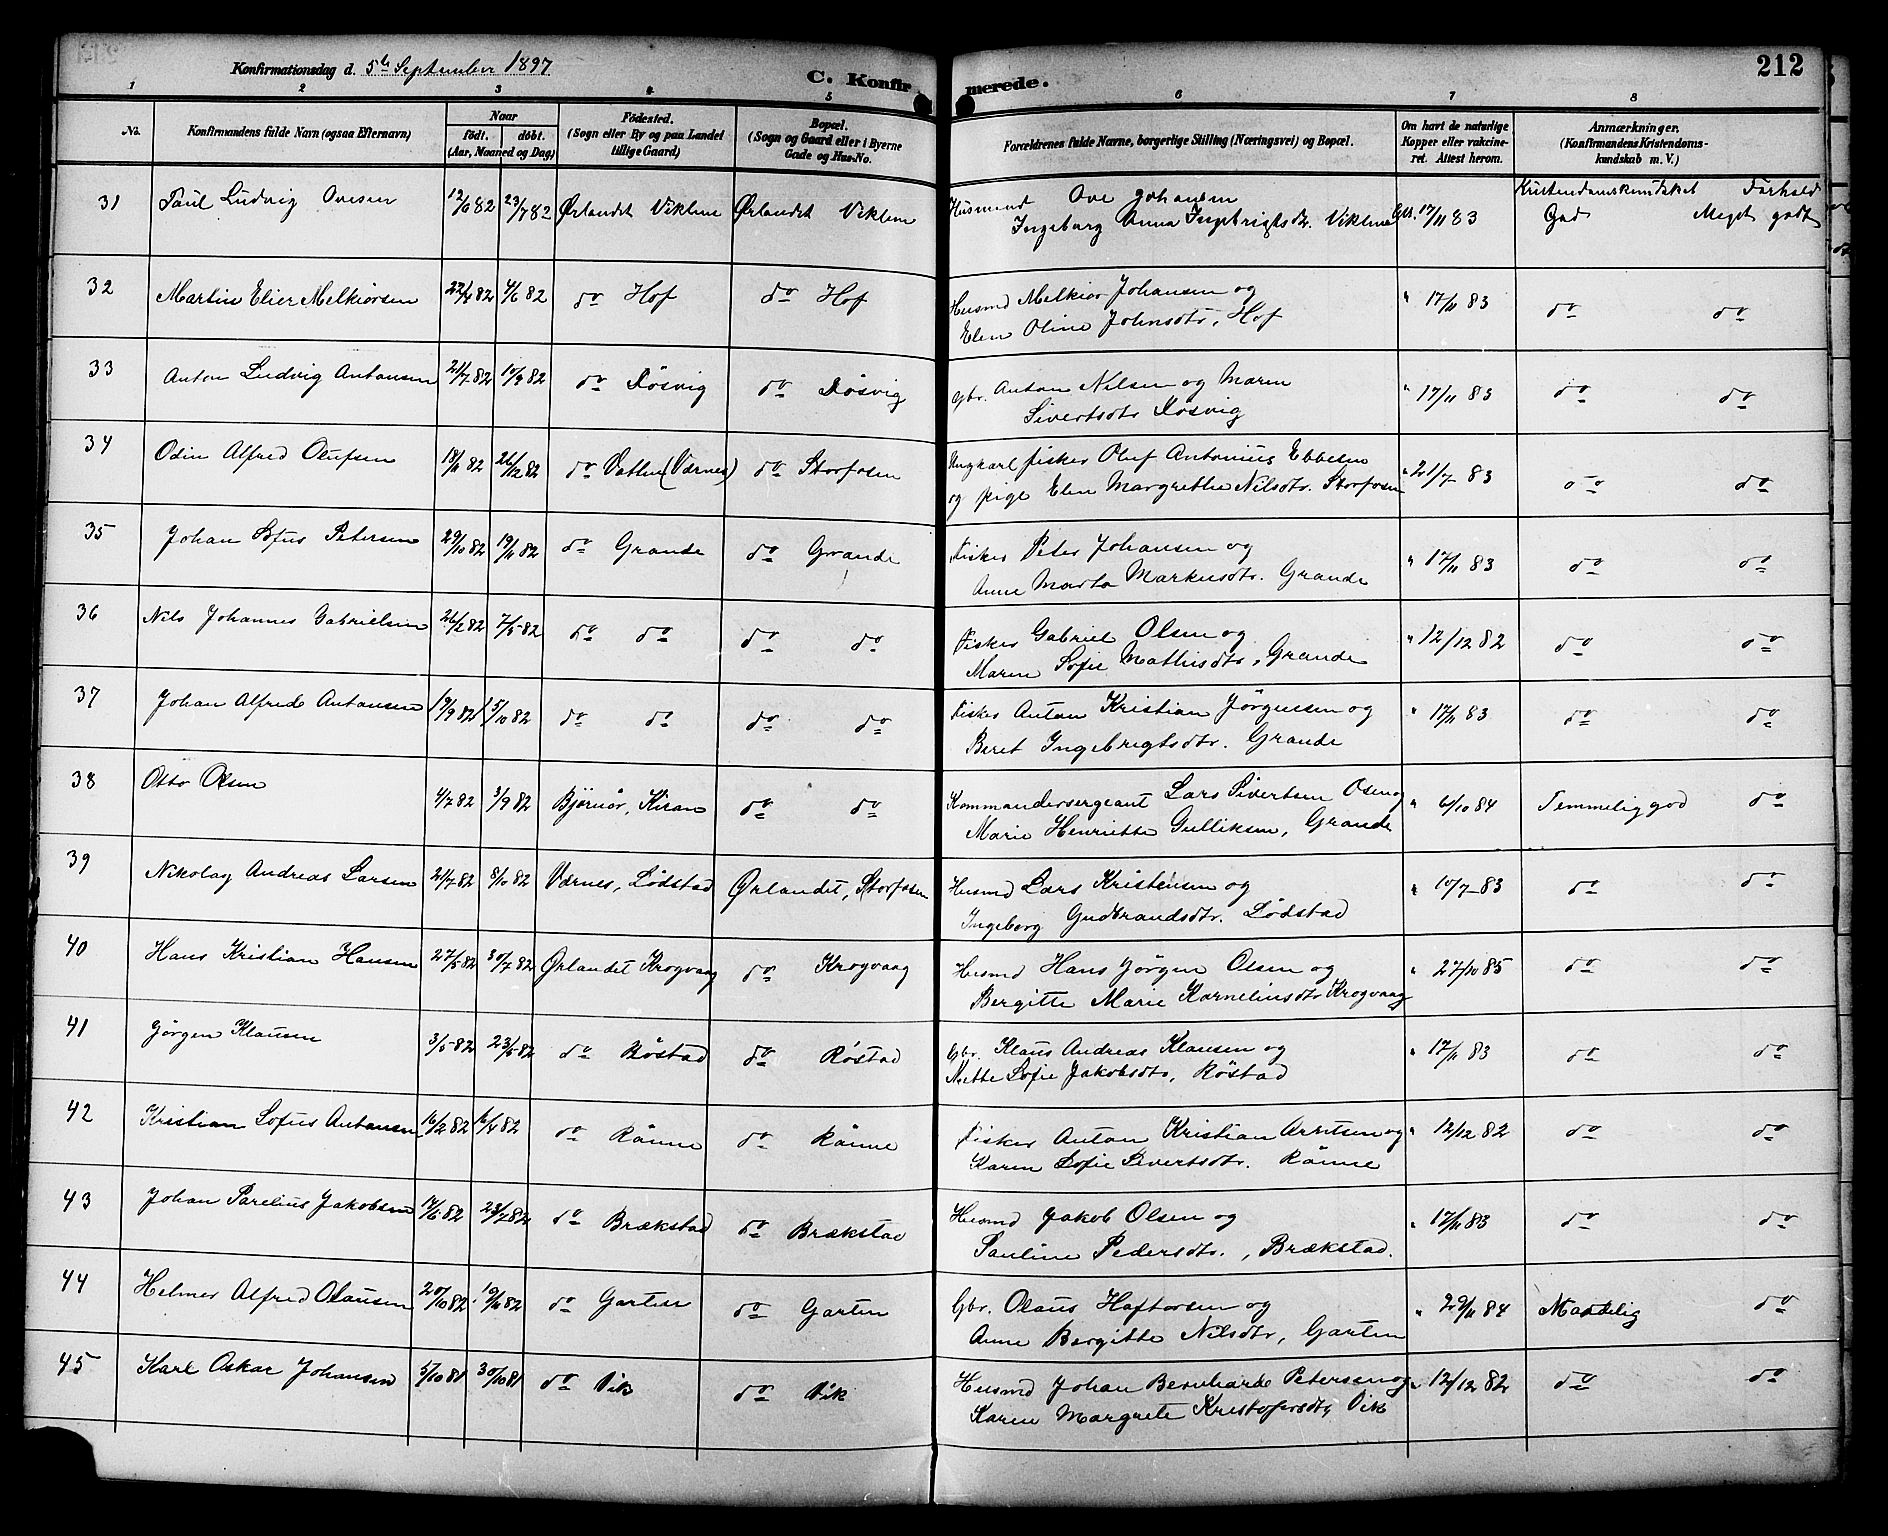 Konfirmationsdag d. 5te September 1897
C. Konfirmerede.
212
1 2 3 4 5 6 7 8
No.
Konfirmandens fulde Navn (ogsaa Efternavn)
Naar
født. døbt.
(Aar, Maaned og Dag)
Födested.
(Sogn eller By og paa Landet
tillige Gaard)
Bopæl.
(Sogn og Gaard eller i Byerne
Gade og Hus-No.
Forældrenes fulde Navne, borgerlige Stilling (Næringsvei) og Bopæl.
Om havt de naturlige
Kopper eller vakcine-
ret. Attest herom.
Anmærkninger.
(Konfirmandens Kristendoms-
kundskab m. V.)
31 Paul Ludvig Ovesen 12/6 82 23/7 82 Ørlandet Viklem Ørlandet Viklem Husmand Ove Johansen 17/11 83 Kristendomskundskab Forhold
Ingeborg Anna Ingebrigtsdtr. Viklem God Meget godt
32 Martin Elier Melkiorsen 22/4 82 4/6 82 do Hof do Hof Husmd Melkior Johansen og " 17/11 83 do do
Elen Oline Johnsdtr, Hof
33 Anton Ludvig Antonsen 21/7 82 10/9 82 do Døsvig do Døsvig Gbr. Anton Nilsen og Maren " 17/11 83 do do
Sivertsdtr Døsvig
34 Odin Alfred Olufsen 18/11 82 26/12 82 do Vatten (Værnes) do Storfosen Ungkarl fisker Oluf Antonius Ebbesen " 21/7 83 do do
og pige Elen Margrethe Nilsdtr. Storfosen
35 Johan Sofus Petersen 29/10 82 19/11 82 do Grande do Grande Fisker Peter Johansen og " 17/11 83 do do
Anne Marta Markusdtr. Grande
36 Nils Johannes Gabrielsen 26/2 82 7/5 82 do do do do Fisker Gabriel Olsen og " 12/12 82 do do
Maren Sofie Mathisdtr, Grande
37 Johan Alfred Antonsen 19/9 82 15/10 82 do do do do Fisker Anton Kristian Jørgensen og " 17/11 83 do do
Beret Ingebrigtsdtr. Grande
38 Otto Olsen 4/7 82 3/9 82 Bjørnør, Kiran do do Kommandersergeant Lars Sivertsen Osen og " 6/10 84 Temmelig god do
Marie Henriette Gulliksen, Grande
39 Nikolay Andreas Larsen 21/7 82 8/10 82 Værnes, Lødstad Ørlandet, Storfosen Husmd Lars Kristensen og " 10/7 83 do do
Ingeborg Gudbrandsdtr. Lødstad
40 Hans Kristian Hansen 27/5 82 30/7 82 Ørlandet Krogvaag do Krogvaag Husmd Hans Jørgen Olsen og " 27/10 85 do do
Bergitte Marie Kornelinsdtr Krogvaag
41 Jørgen Klausen 3/5 82 23/5 82 do Røstad do Røstad Gbr. Klaus Andreas Klausen og " 17/11 83 do do
Mette Sofie Jakobsdtr, Røstad
42 Kristian Sofus Antonsen 16/2 82 16/4 82 do Rønne do Rønne Fisker Anton Kristian Arntsen og " 12/12 82 do do
Karen Sofie Sivertsdtr. Rønne
43 Johan Parelius Jakobsen 17/6 82 23/7 82 do Brækstad do Brækstad Husmd Jakob Olsen og " 17/11 83 do do
Pauline Pedersdtr., Brækstad.
44 Helmer Alfred Olausen 20/10 82 19/11 82 do Garten do Garten Gbr. Olaus Haftorsen og " 29/11 84 Maadelig do
Anne Bergitte Nilsdtr, Garten
45 Karl Oskar Johansen 5/10 81 30/10 81 do Vik do Vik Husmd Johan Bernhard Petersen og " 12/12 82 do do
Karen Margrete Kristofersdtr, Vik